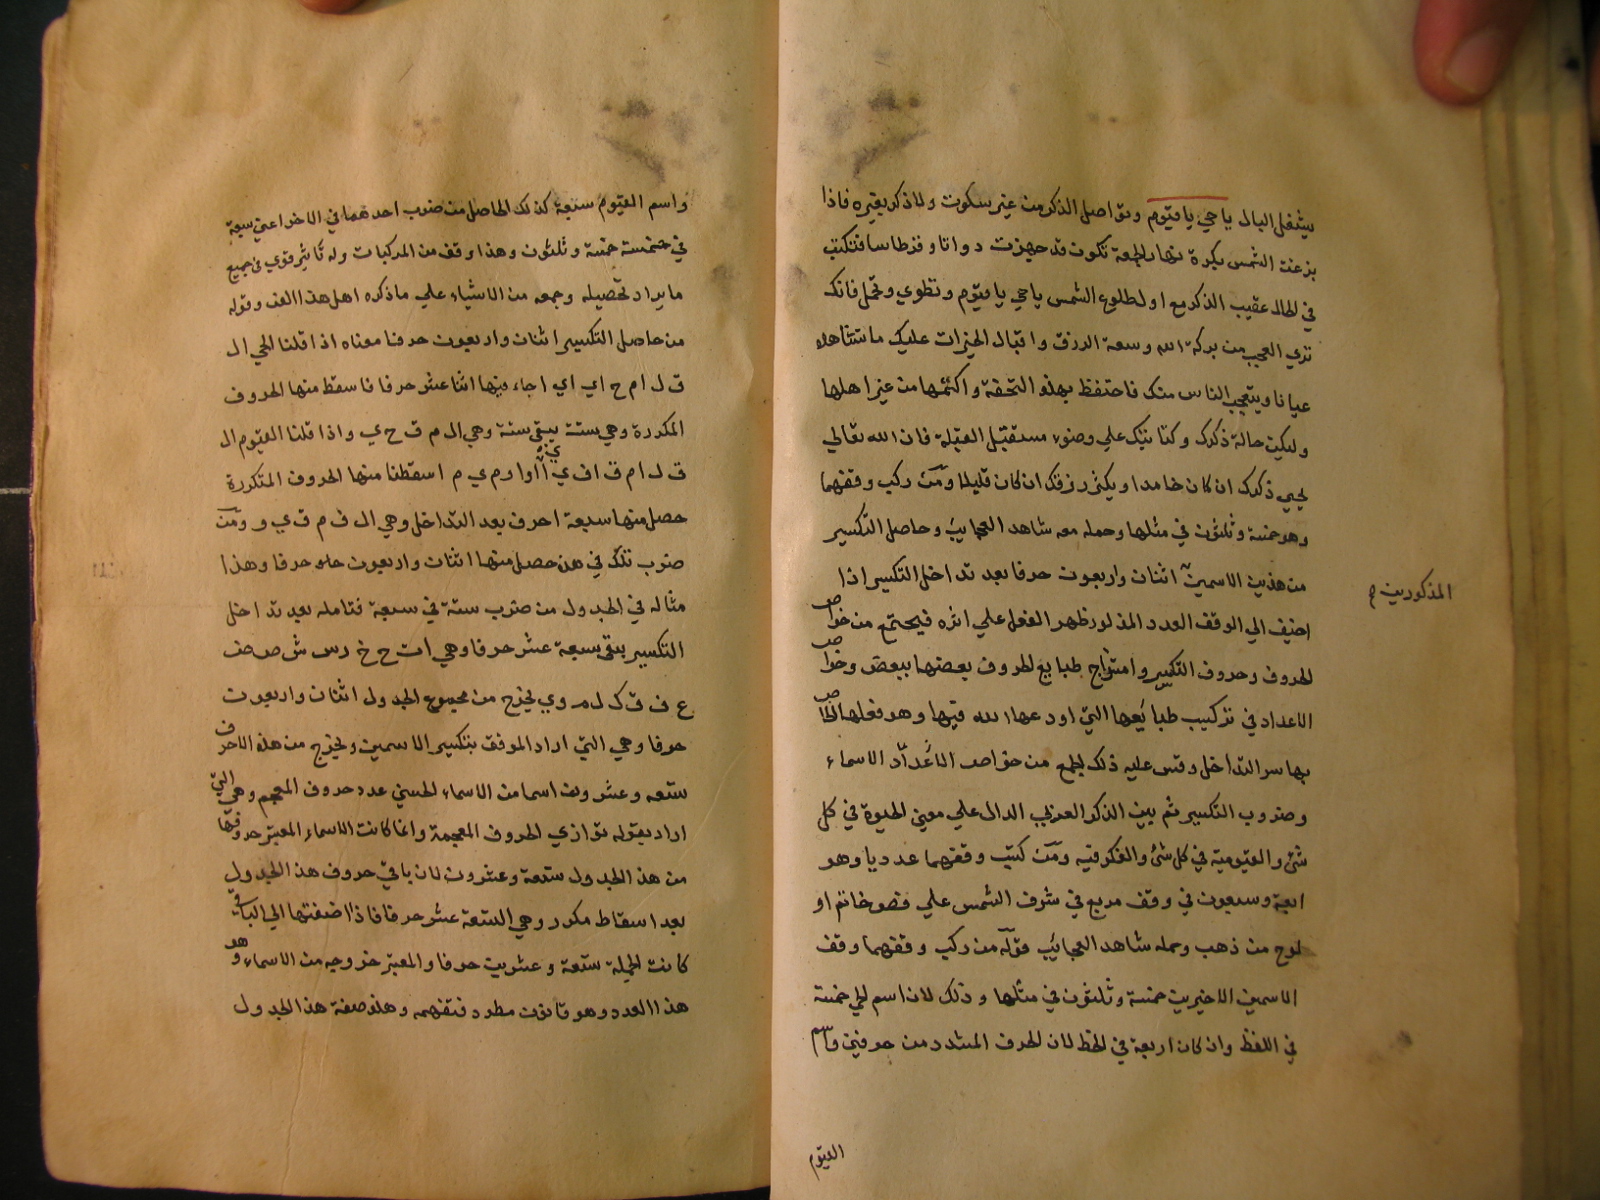 يشغل البال يا حي يا قيوم وتواصل الذكر من غير سكوت ولا ذكر بغيره فاذا
بزغت الشمس بكرة نهار الجمعة تكون قد جهزت دواتا وقرطاسا فتكتب
في الحال عقيب الذكر مع اول طلوع الشمس يا حي يا قيوم وتطوي وتحمل فانك
تري العجب من بركة الله وسعة الرزق واقبال الخيرات عليك ما تشاهده
عيانا ويتعجب الناس منك فاحتفظ بهذه التحفة واكتمها من غير اهلها
وليكن حالة ذكرك وكتابتك علي وضوء مستقبل القبلة فان الله تعالي
يحي ذكرك ان كان خامدا ويكثر رزقك ان كان قليلا ومن ركب وفقهما
وهو خمسة وثلثون في مثلها وحمله معه شاهد العجايب وحاصل التكسير
من هذين الاسمين اثنان واربعون حرفا بعد تداخل التكسير اذا
المذكورين
اضيف الي الوفق العدد المذكور ظهر الفعل علي اثره فيجتمع من خواص
الحروف وحروف التكسير وامتزاج طبايع الحروف بعضها ببعض وخواص
الاعداد في تركيب طبايعها التي اودعها الله فيها وهو فعلها الخاص
بها سر التداخل وقس عليه ذلك لجمع من خواص الاعداد الاسماء
وضروب التكسير ثم بين الذكر العددي الدال علي معني الحيوة في كل
شئ والقيومية في كل شئ والفكر فيه ومن كتب وفقهما عدديا وهو
اربعة وسبعون في وفق مربع في شرف الشمس علي فص خاتم او
لوح من ذهب وحمله شاهد العجايب قوله من ركب وفقهما وفق
الاسمين الاخيرين خمسة وثلثون في مثلها وذلك لان اسم الحي خمسة
في اللفظ وان كان اربعة في الخط لان الحرف المشدد من حرفين واسم
القيوم
واسم القيوم سبعة كذلك الحاصل من ضرب احدهما في الاخر اعني سبعة
في خمسة خمسة وثلثون وهذا وفق من المركبات وله تاثير قوي في جميع
ما يراد تحصيله وجمعه من الاشياء علي ما ذكره اهل هذا الفن وقوله
من حاصل التكسير اثنان واربعون حرفا معناه اذا قلنا الحي ال
ف ل ا م ح ا ي ا ي ا جاء فيها اثنا عشر حرفا فاسقط منها الحروف
المكررة وهي ستة يبقي ستة وهي ال م ف ح ي واذا قلنا القيوم ال
ف ل ا م ق ا ف ي ا ا و ا و م ي م اسقطنا منها الحروف المتكررة
حصل منها سبعة احرف بعد التداخل وهي ال ف م ق ي و ومن
ضرب تلك في هذه حصل منها اثنان واربعون حرفا وهذا
مثاله في الجدول من ضرب ستة في سبعة فتامله بعد تداخل
التكسير يبقي سبعة عشر حرفا وهي ا ت ح خ ر س ش ص ض
ع ف ق ك ل م و ي يخرج من مجموع الجدول اثنان واربعون
حرفا وهي التي اراد الموفق بتكسير الاسمين ويخرج من هذه الاحرف
تسعه وعشرون اسما من الاسماء الحسني عدد حروف المعجم وهي التي
اراد بقوله توازي الحروف المعجمة وانما كانت الاسماء المعبر حروفها
من هذ الجدول تسعة وعشرون لان باقي حروف هذ الجدول
بعد اسقاط مكرر وهي السبعة عشر حرفا فاذا اضفتها الي الباقي
كانت الجملة تسعة وعشرين حرفا والمعبر خروجه من الاسماء هو
هذا العدد وهو قانون مطرد فتفهمه وهذه صفة هذ الجدول